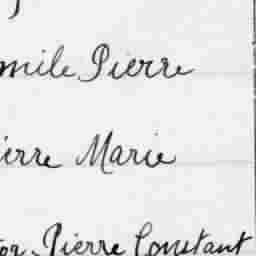 mile Pierre
ierre Marie
tor Pierre Constant